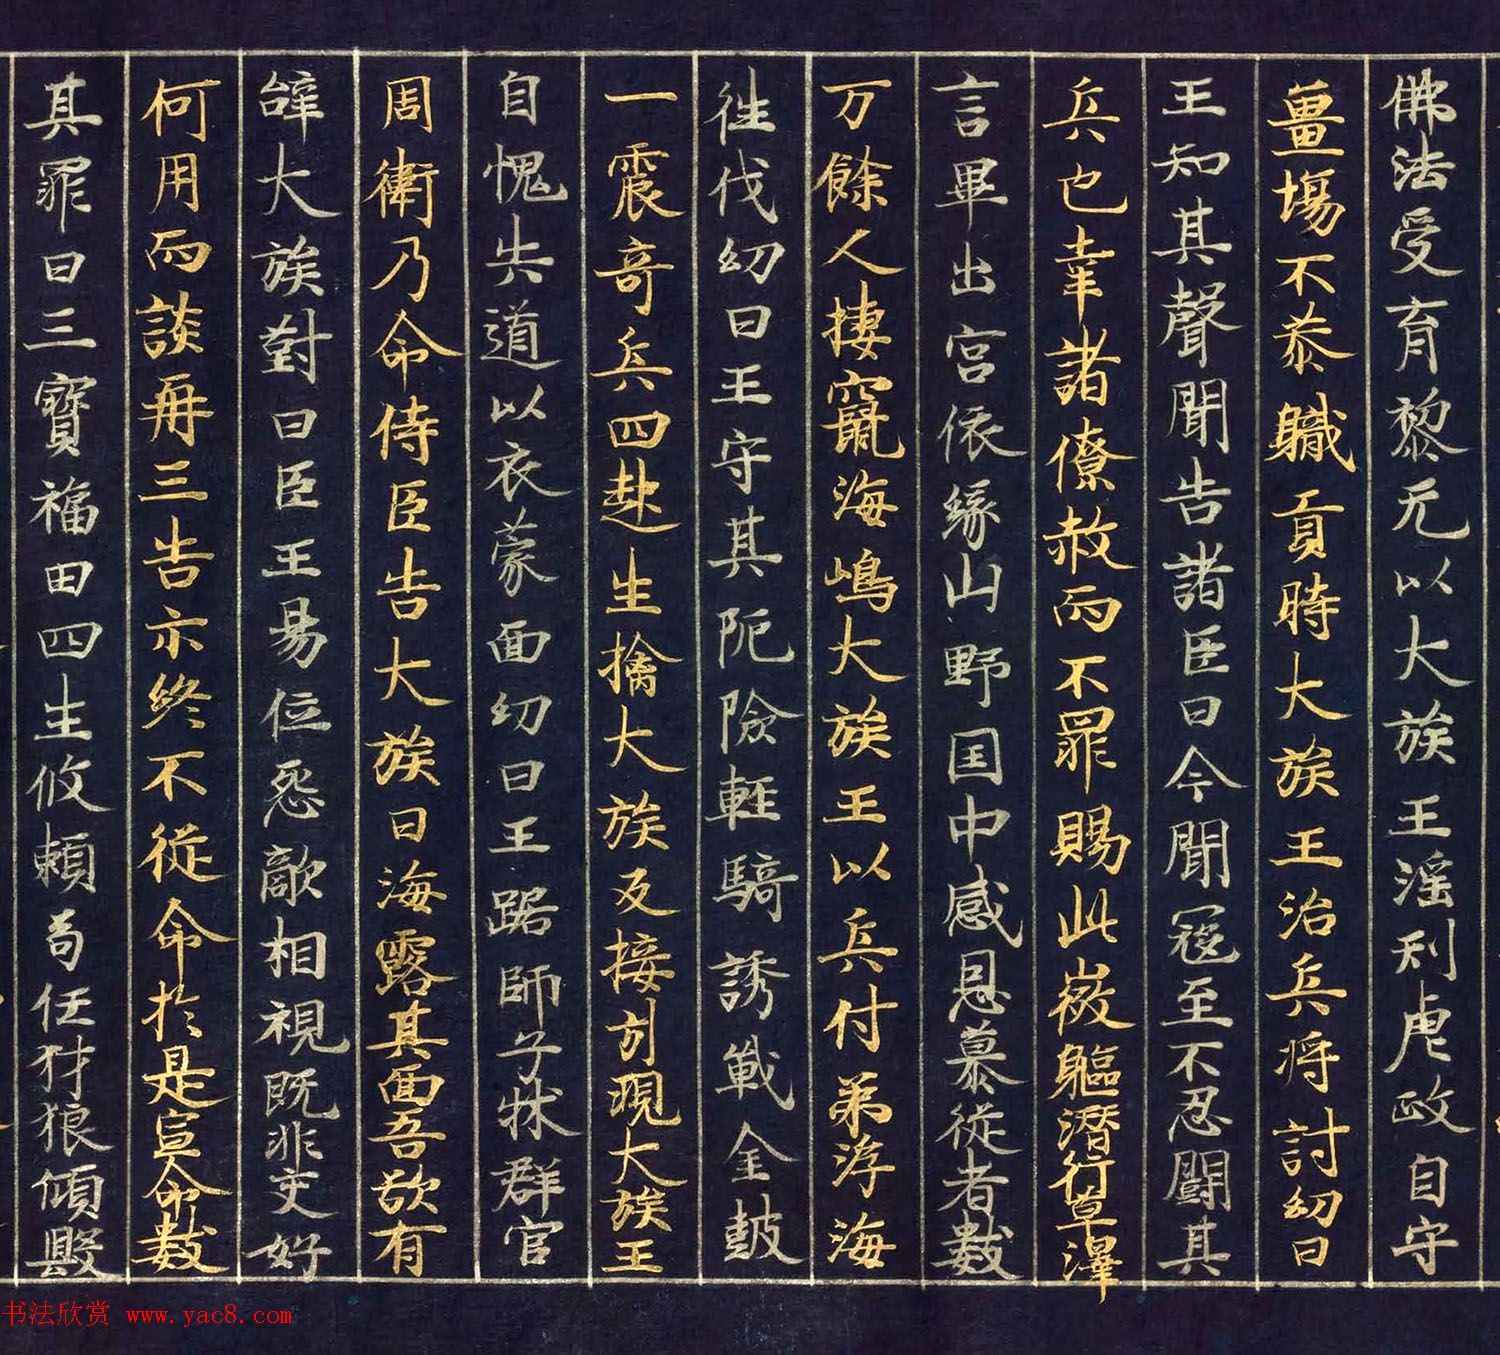 佛法受育黎元以大族王淫刑虐政自守
畺埸不恭職貢時大族王治兵將討幻日
王知其聲聞告諸臣曰今聞寇至不忍鬪其
兵也幸諸僚赦而不罪賜此微軀潛行草澤
言畢出宮依緣山野国中感恩慕從者數
万餘人捿竄海嶋大族王以兵付弟浮海
往伐幻日王守其阨險輕騎誘戰金鼓
一震奇兵四起生擒大族反接引現大族王
自愧失道以衣蒙面幻日王踞師子牀群官
周衛乃命侍臣告大族曰汝露其面吾欲有
辝大族對曰臣王易位怨敵相視既非交好
何用面談再三告示終不從命於是宣命數
其罪曰三寶福田四生攸頼苟任犲狼傾毀
书法欣赏 www.yac8.com